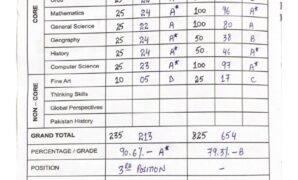 CORE
Mathematics 25 24 A* 100 96 A*
General Science 25 22 A 100 80 A
Geography 25 24 A* 50 38 B
History 25 24 A* 50 46 A*
Computer Science 25 23 A* 100 97 A*
NON - CORE
Fine Art 10 05 D 25 17 C
Thinking Skills
Global Perspectives
Pakistan History
GRAND TOTAL 235 213 825 654
PERCENTAGE / GRADE 90.6% - A* 79.3% - B
POSITION 3rd POSITION -